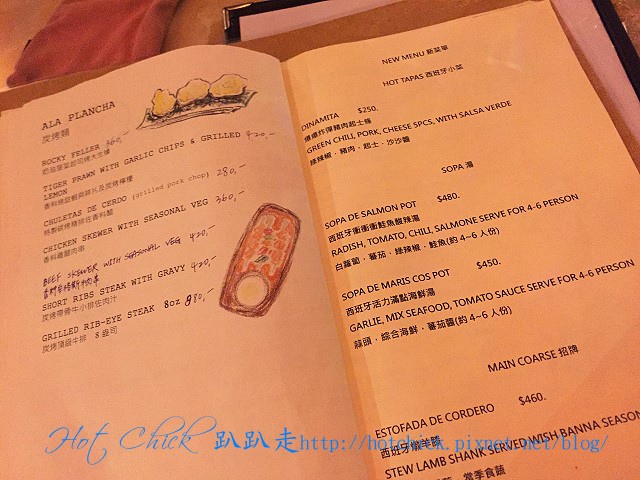 ALA PLANCHA
炭烤類
ROCKY FELLER 360,-
奶油菠菜起司烤大生蠔
TIGER PRAWN WITH GARLIC CHIPS & GRILLED 420,-
LEMON
CHULETAS DE CERDO (grilled pork chop) 280,-
特製碳烤豬排佐香料醋
CHICKEN SKEWER WITH SEASONAL VEG 360,-
香料雞腿肉串
BEEF SKEWER WITH SEASONAL VEG 420,-
SHORT RIBS STEAK WITH GRAVY 420,-
炭烤帶骨牛小排佐肉汁
GRILLED RIB-EYE STEAK 8oz 880,-
炭烤頂級牛排 8盎司
NEW MENU 新菜單
HOT TAPAS 西班牙小菜
DINAMITA $250.
爆爆炸彈豬肉起士條
GREEN CHILI, PORK, CHEESE 5PCS, WITH SALSA VERDE
綠辣椒．豬肉．起士．沙沙醬
SOPA 湯
SOPA DE SALMON POT $480.
西班牙衝衝衝鮭魚酸辣湯
RADISH, TOMATO, CHILI, SALMONE SERVE FOR 4-6 PERSON
白蘿蔔．蕃茄．綠辣椒．鮭魚(約 4~6 人份)
SOPA DE MARIS COS POT $450.
西班牙活力滿點海鮮湯
GARLIE, MIX SEAFOOD, TOMATO SAUCE SERVE FOR 4-6 PERSON
蒜頭．綜合海鮮．蕃茄醬(約 4~6 人份)
MAIN COARSE 招牌
ESTOFADA DE CORDERO $460.
西班牙燉羊膝
STEW LAMB SHANK SERVED WISH BANNA SEASON
當季食蔬
Hot Chick 趴趴走http://hotchick.pixnet.net/blog/